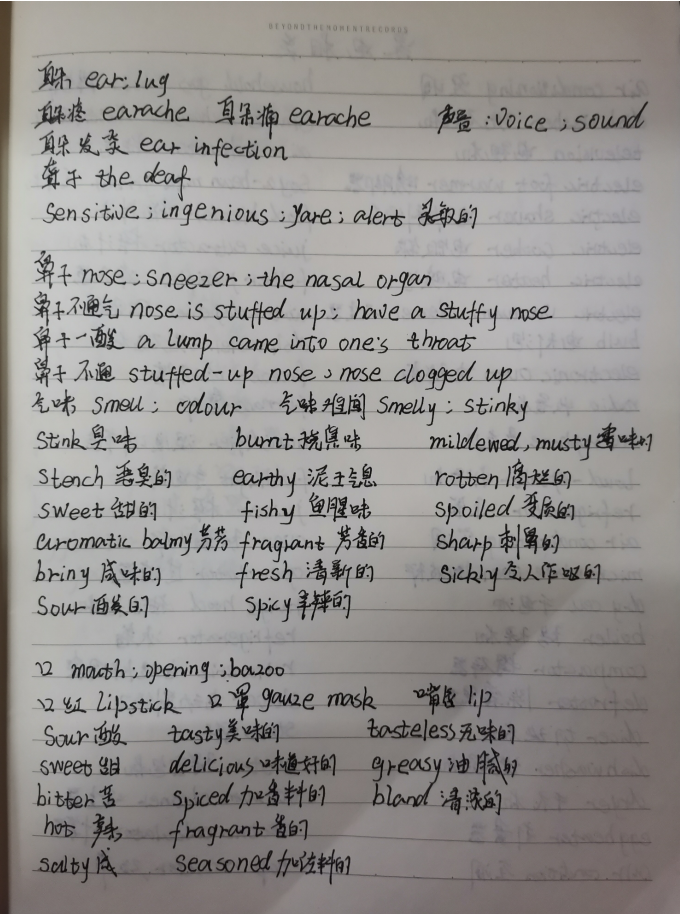 BEYONDTHEMOMENTRECORDS
耳朵 ear; lug
耳朵疼 earache 耳朵痛 earache 声音: voice; sound
耳朵发炎 ear infection
聋子 the deaf
sensitive; ingenious; yare; alert 灵敏的
鼻子 nose; sneezer; the nasal organ
鼻子不通气 nose is stuffed up; have a stuffy nose
鼻子一酸 a lump came into one's throat
鼻子不通 stuffed-up nose; nose clogged up
气味 smell; odour 气味难闻 smelly; stinky
stink 臭味 burnt 烧焦味 mildewed, musty 霉味的
stench 恶臭的 earthy 泥土气息 rotten 腐烂的
sweet 甜的 fishy 鱼腥味 spoiled 变质的
aromatic balmy 芳芳 fragrant 芳香的 sharp 刺鼻的
briny 咸味的 fresh 清新的 sickly 令人作呕的
sour 酸的 spicy 辛辣的
口 mouth; opening; bazoo
口红 lipstick 口罩 gauze mask 嘴唇 lip
sour 酸 tasty 美味的 tasteless 无味的
sweet 甜 delicious 味道好的 greasy 油腻的
bitter 苦 spiced 加香料的 bland 清淡的
hot 辣 fragrant 香的
salty 咸 seasoned 加佐料的